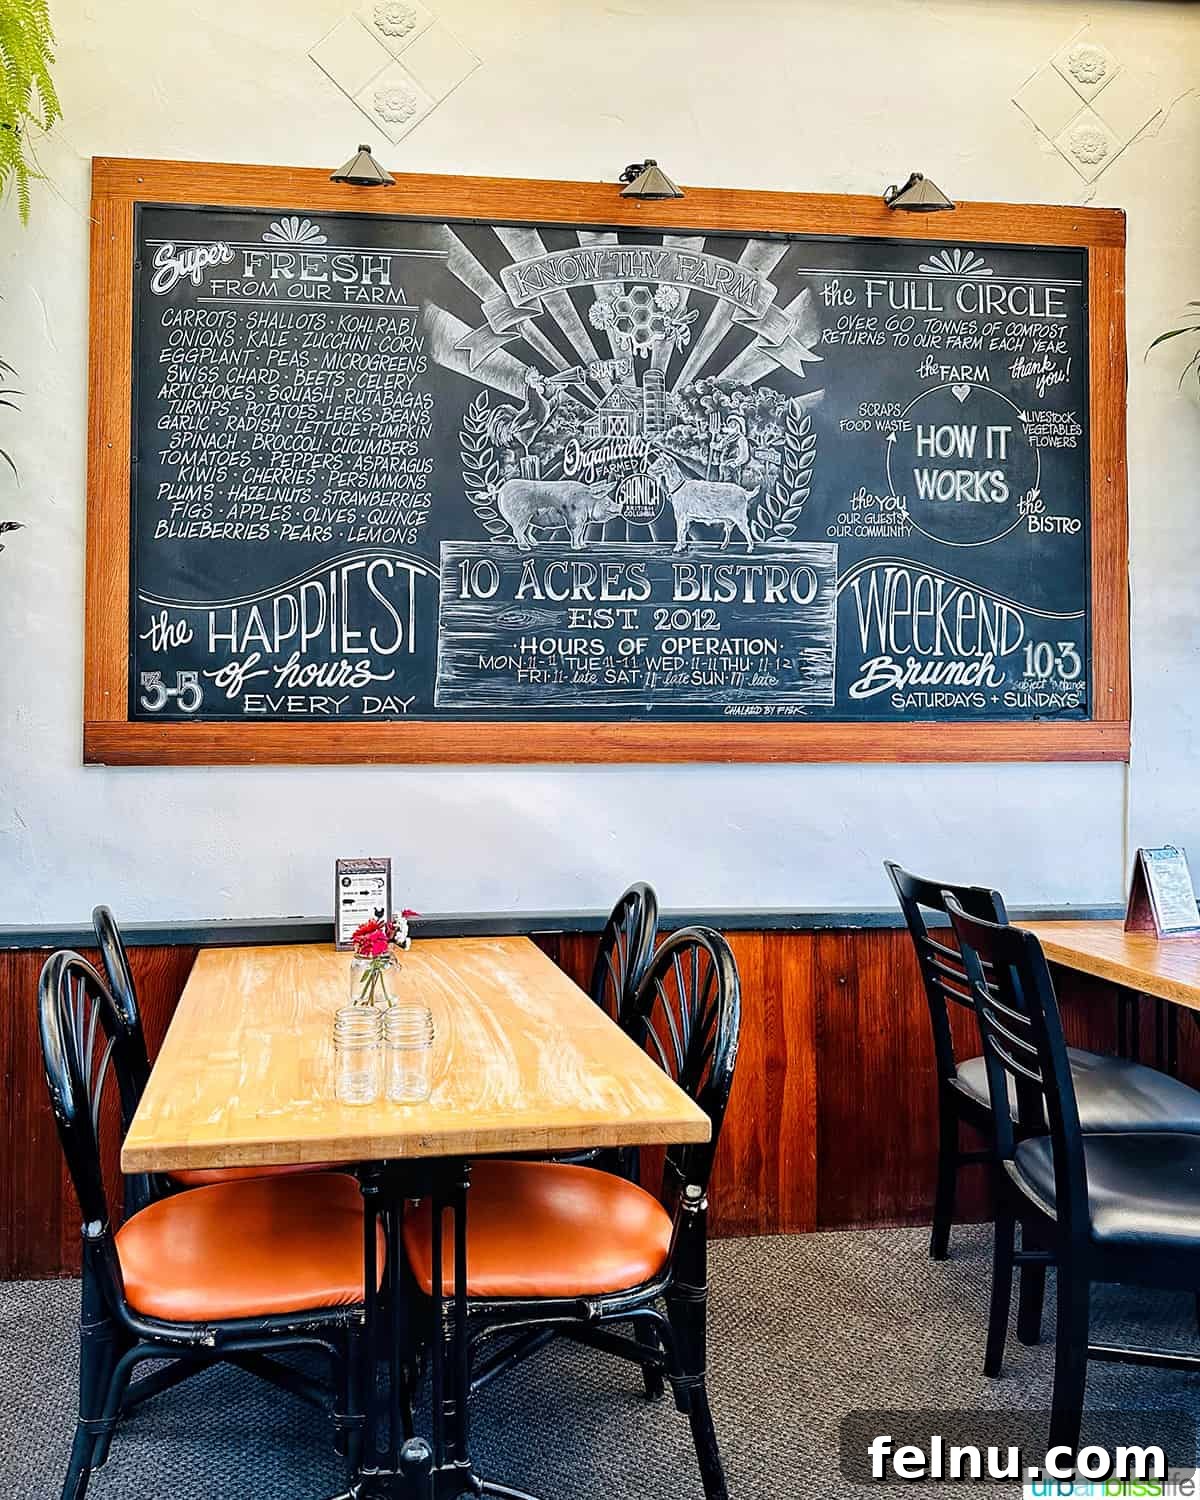 Super FRESH
FROM OUR FARM
CARROTS · SHALLOTS · KOHLRABI
ONIONS · KALE · ZUCCHINI · CORN
EGGPLANT · PEAS · MICROGREENS
SWISS CHARD · BEETS · CELERY
ARTICHOKES · SQUASH · RUTABAGAS
TURNIPS · POTATOES · LEEKS · BEANS
GARLIC · RADISH · LETTUCE · PUMPKIN
SPINACH · BROCCOLI · CUCUMBERS
TOMATOES · PEPPERS · ASPARAGUS
KIWIS · CHERRIES · PERSIMMONS
PLUMS · HAZELNUTS · STRAWBERRIES
FIGS · APPLES · OLIVES · QUINCE
BLUEBERRIES · PEARS · LEMONS
the HAPPIEST
of hours
3-5
EVERY DAY
KNOW THY FARM
Organically
FARMED
SAANICH
BRITISH
COLUMBIA
10 ACRES BISTRO
EST. 2012
·HOURS OF OPERATION·
MON·11-11 TUE·11-11 WED·11-11 THU·11-12
FRI·11-late SAT·11-late SUN·11-late
CHALKED BY FISK
the FULL CIRCLE
OVER 60 TONNES OF COMPOST
RETURNS TO OUR FARM EACH YEAR
the FARM
thank
you!
SCRAPS
FOOD WASTE
LIVESTOCK
VEGETABLES
FLOWERS
HOW IT
WORKS
the YOU
OUR GUESTS
OUR COMMUNITY
the
BISTRO
WEEKEND
Brunch
10-3
subject to change
SATURDAYS + SUNDAYS
felnu.com
urbanblisslife